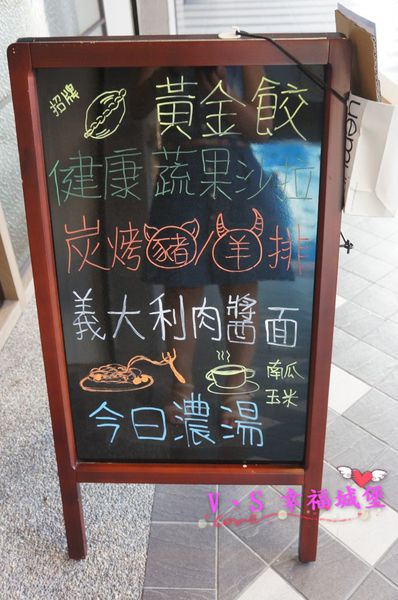 招牌 黃金餃
健康蔬果沙拉
炭烤豬/羊排
義大利肉醬面
南瓜
玉米
今日濃湯
V.S 幸福城堡
Love